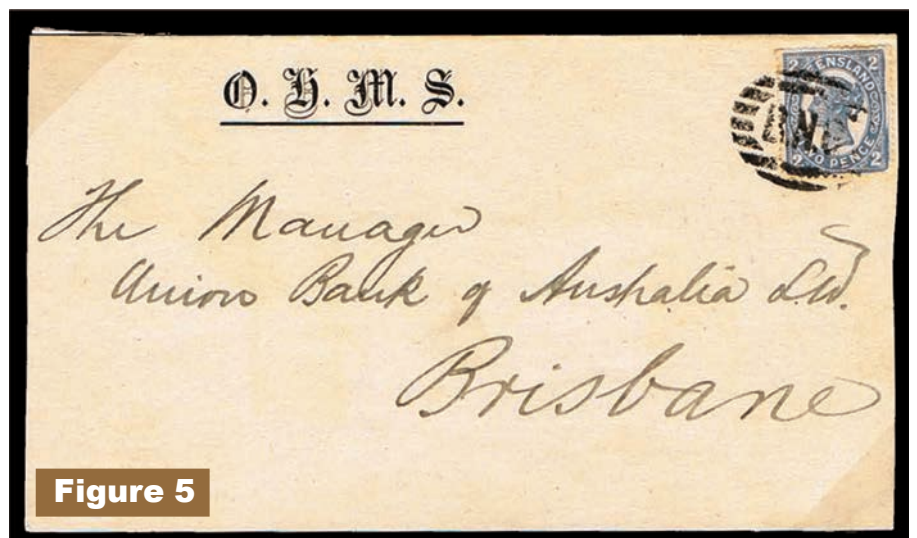 O. H. M. S.
2 2
EENSLAND
TWO PENCE
2 2
The Manager
Union Bank of Australia Ltd.
Brisbane
Figure 5